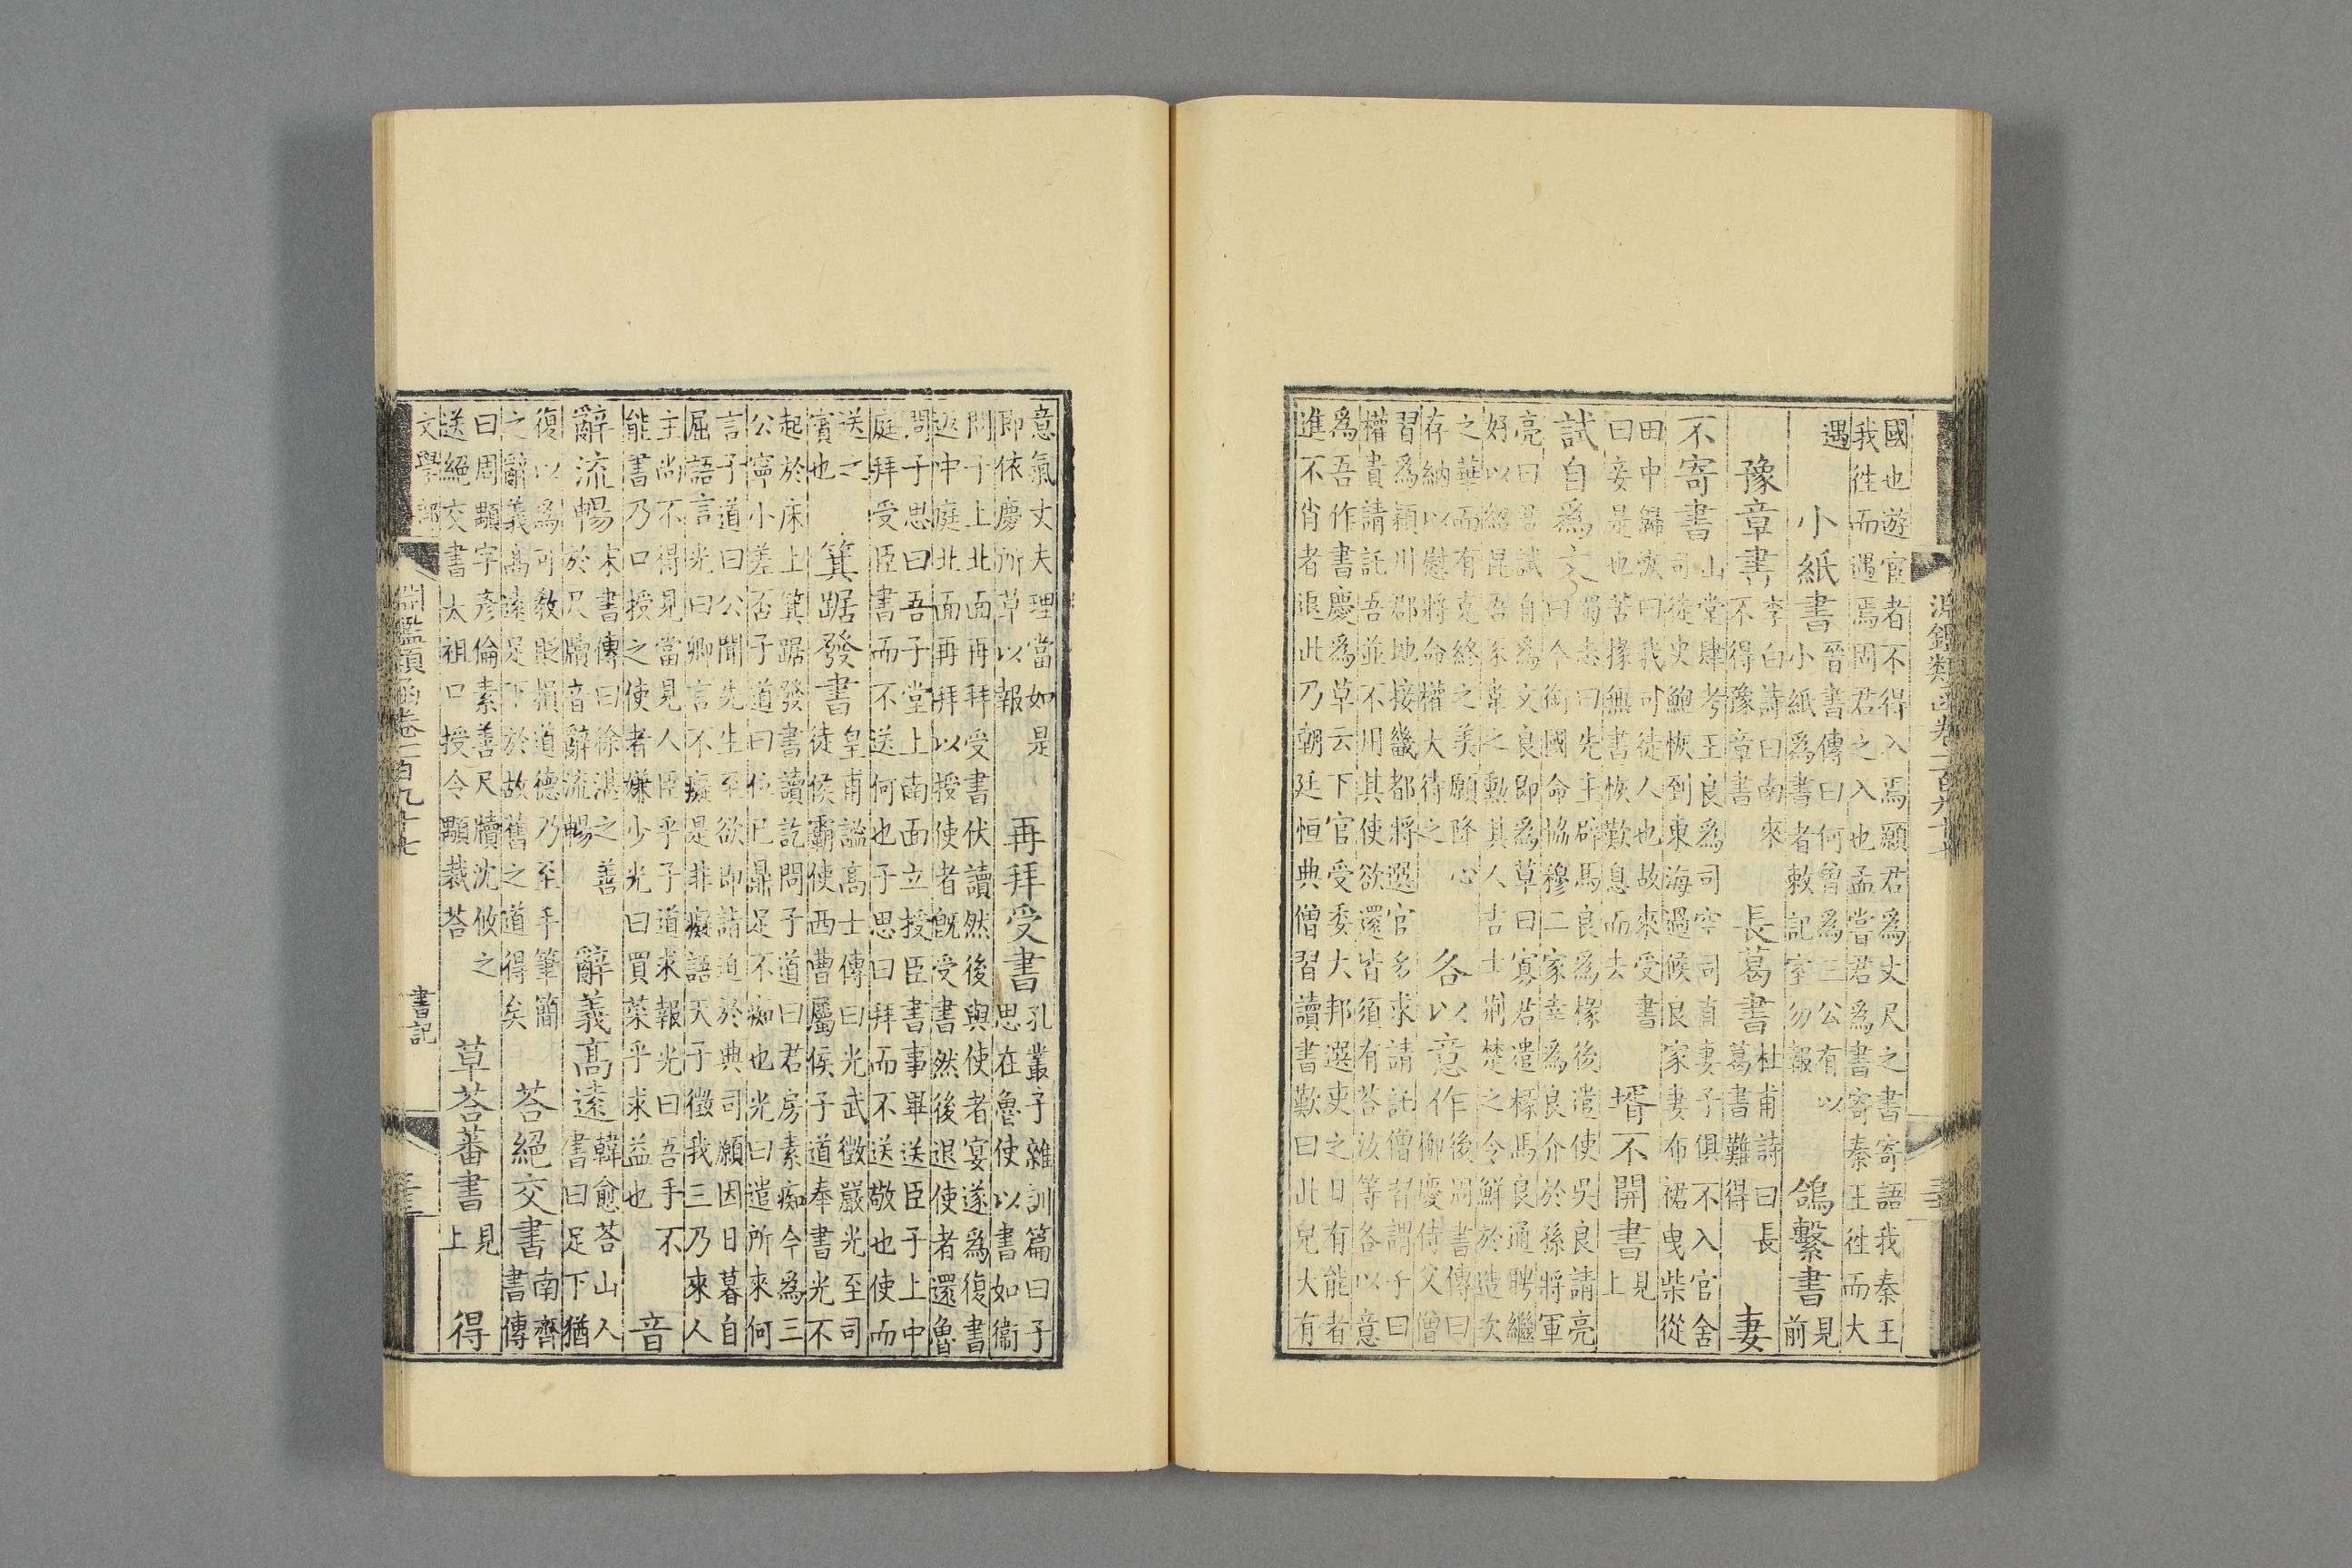 淵鑑類函卷一百九十七
國也遊宦者不得入焉願君爲丈尺之書寄語我秦王
我徃而遇焉固君之入也孟嘗君爲書寄秦王徃而大
遇
小紙書
晉書傳曰何曾爲三公有以
小紙爲書者敕記室勿報
鴿繫書
見
前
豫章書
李白詩曰南來
不得豫章書
長葛書
杜甫詩曰長
葛書難得
妻
不寄書
山堂肆考王良爲司空司直妻子俱不入官舍
司徒史鮑恢到東海過候良家妻布裙曳柴從
田中歸恢曰我司徒人也故來受書
曰妾是也苦掾無書恢歎息而去
壻不開書
見
上
試自爲文
蜀志曰先主辟馬良爲掾後遣使吳良請亮
曰今銜國命協穆二家幸爲良介於孫將軍
亮曰君試自爲文良即爲草曰寡君遣掾馬良通聘繼
好以紹昆吾豕韋之勳其人吉士荆楚之令鮮於造次
之華而有克終之美願降心
存納以慰將命權大待之
各以意作
後周書傳曰
柳慶侍父僧
習爲潁川郡地接畿都將選官多求請託僧習謂子曰
權貴請託吾並不用其使欲還皆須有荅汝等各以意
爲吾作書慶爲草云下官受委大邦選吏之日有能者
進不肖者退此乃朝廷恒典僧習讀書歎曰此兒大有
意氣丈夫理當如是
即依慶所草以報
再拜受書
孔叢子雜訓篇曰子
思在魯使以書如衞
問子上北面再拜受書伏讀然後與使者宴遂爲復書
返中庭北面再拜以授使者既受書然後退使者還魯
問子思曰吾子堂上南面立授臣書事畢送臣子上中
庭拜受臣書而不送何也子思曰拜而不送敬也使而
送之
賓也
箕踞發書
皇甫謐高士傳曰光武徵嚴光至司
徒侯霸使西曹屬侯子道奉書光不
起於床上箕踞發書讀訖問子道曰君房素痴今爲三
公寧小差否子道曰位已鼎足不痴也光曰遣所來何
言子道曰公聞先生至欲即詣迫於典司願因日暮自
屈語言光曰卿言不癡是非癡語天子徵我三乃來人
主尚不得見當見人臣乎子道求報光曰吾手不
能書乃口授之使者嫌少光曰買菜乎求益也
音
辭流暢
宋書傳曰徐湛之善
於尺牘音辭流暢
辭義高遠
韓愈荅山人
書曰足下猶
復以爲可教貶損道德乃至手筆簡
之辭義高遠足下於故舊之道得矣
荅絕交書
南齊
書傳
曰周顒字彥倫素善尺牘沈攸之
送絕交書太祖口授令顒裁荅
草荅蕃書
見
上
得
文學部
淵鑑類函卷一百九十七
書記